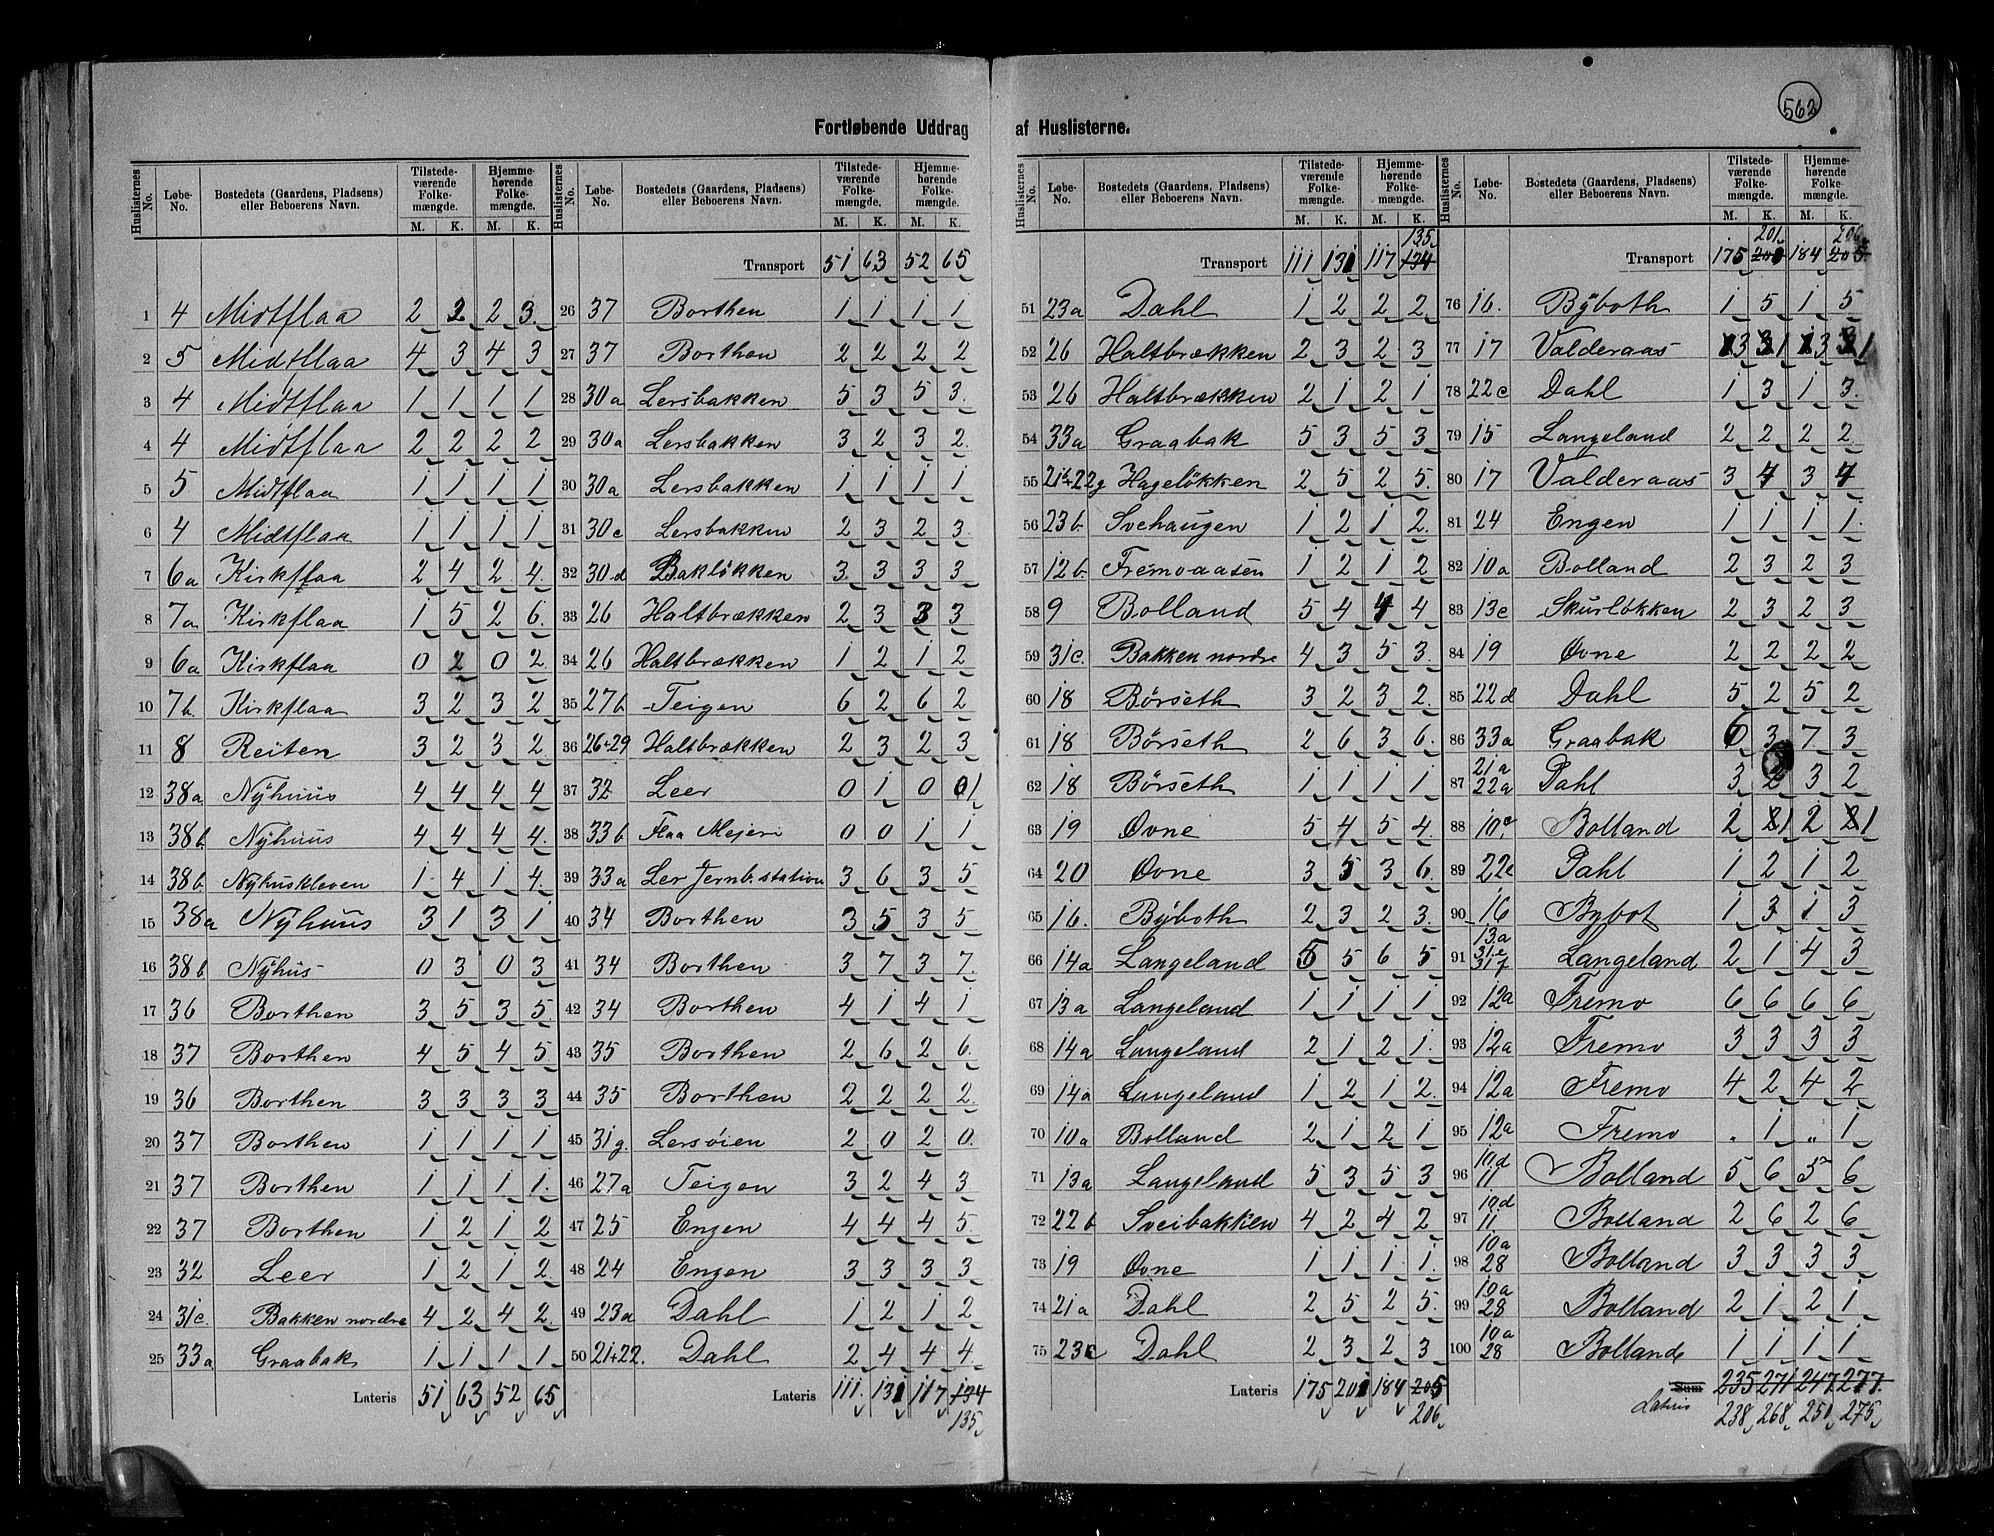 562
Fortløbende Uddrag af Huslisterne.
Huslisternes No. | Løbe-No. | Bostedets (Gaardens, Pladsens) eller Beboerens Navn. | Tilstedeværende Folkemængde. M. K. | Hjemmehørende Folkemængde. M. K.
1 4 Midtflaa 2 2 2 3
2 5 Midtflaa 4 3 4 3
3 4 Midtflaa 1 1 1 1
4 4 Midtflaa 2 2 2 2
5 5 Midtflaa 1 1 1 1
6 4 Midtflaa 1 1 1 1
7 6a Kirkflaa 2 4 2 4
8 7a Kirkflaa 1 5 2 6
9 6a Kirkflaa 0 2 0 2
10 7b Kirkflaa 3 2 3 2
11 8 Reiten 3 2 3 2
12 38a Nÿhuus 4 4 4 4
13 38b Nÿhuus 4 4 4 4
14 38b Nÿhuskleven 1 4 1 4
15 38a Nÿhuus 3 1 3 1
16 38b Nÿhus 0 3 0 3
17 36 Borthen 3 5 3 5
18 37 Borthen 4 5 4 5
19 36 Borthen 3 3 3 3
20 37 Borthen 1 1 1 1
21 37 Borthen 1 1 1 1
22 37 Borthen 1 2 1 2
23 32 Leer 1 2 1 2
24 31c Bakken nordre 4 2 4 2
25 33a Graabak 1 1 1 1
Lateris 51 63 52 65
Huslisternes No. | Løbe-No. | Bostedets (Gaardens, Pladsens) eller Beboerens Navn. | Tilstedeværende Folkemængde. M. K. | Hjemmehørende Folkemængde. M. K.
Transport 51 63 52 65
26 37 Borthen 1 1 1 1
27 37 Borthen 2 2 2 2
28 30a Lersbakken 5 3 5 3
29 30a Lersbakken 3 2 3 2
30 30a Lersbakken 1 1 1 1
31 30c Lersbakken 2 3 2 3
32 30d Bakløkken 3 3 3 3
33 26 Haltbrækken 2 3 3 3
34 26 Haltbrækken 1 2 1 2
35 27b Teigen 6 2 6 2
36 26+29 Haltbrækken 2 3 2 3
37 32 Leer 0 1 0 0 1
38 33b Flaa Mejeri 0 0 1 1
39 33a Ler Jernb.station 3 6 3 5
40 34 Borthen 3 5 3 5
41 34 Borthen 3 7 3 7
42 34 Borthen 4 1 4 1
43 35 Borthen 2 6 2 6
44 35 Borthen 2 2 2 2
45 31g. Lersøien 2 0 2 0
46 27a Teigen 3 2 4 3
47 25 Engen 4 4 4 5
48 24 Engen 3 3 3 3
49 23a Dahl 1 2 1 2
50 21+22. Dahl 2 4 4 4
Lateris 111. 131 117 134
135
Huslisternes No. | Løbe-No. | Bostedets (Gaardens, Pladsens) eller Beboerens Navn. | Tilstedeværende Folkemængde. M. K. | Hjemmehørende Folkemængde. M. K.
135
Transport 111 131 117 134
51 23a Dahl 1 2 2 2
52 26 Haltbrækken 2 3 2 3
53 26 Haltbrækken 2 1 2 1
54 33a Graabak 5 3 5 3
55 21b+22g Hageløkken 2 5 2 5
56 23b Svehaugen 1 2 1 2
57 12b. Fremoaasen 1 2 1 2
58 9 Bolland 5 4 4 4
59 31c. Bakken nordre 4 3 5 3
60 18 Børseth 3 2 3 2
61 18 Børseth 2 6 3 6
62 18 Børseth 1 1 1 1
63 19 Ovne 5 4 5 4
64 20 Ovne 3 5 3 6
65 16. Bÿboth 2 3 2 3
66 14a Langeland 5 5 6 5
67 13a Langeland 1 1 1 1
68 14a Langeland 2 1 2 1
69 14a Langeland 1 2 1 2
70 10a Bolland 2 1 2 1
71 13a Langeland 5 3 5 3
72 22b Sveibakken 4 2 4 2
73 19 Ovne 1 1 1 1
74 21a Dahl 2 5 2 5
75 23c Dahl 2 3 2 3
Lateris 175 201 184 205
206
Huslisternes No. | Løbe-No. | Bostedets (Gaardens, Pladsens) eller Beboerens Navn. | Tilstedeværende Folkemængde. M. K. | Hjemmehørende Folkemængde. M. K.
201 206
Transport 175 200 184 205
76 16. Bÿboth 1 5 1 5
77 17 Valderaas 3 1 3 1
78 22c Dahl 1 3 1 3
79 15 Langeland 2 2 2 2
80 17 Valderaas 3 4 3 4
81 24 Engen 1 1 1 1
82 10a Bolland 2 3 2 3
83 13c Skurløkken 2 3 2 3
84 19 Ovne 2 2 2 2
85 22d Dahl 5 2 5 2
86 33a Graabak 6 3 7 3
87 21a 22a Dahl 3 2 3 2
88 10c Bolland 2 2 1 2 2 1
89 22e Dahl 1 2 1 2
90 16 Bybot 1 3 1 3
91 13a 31e 31f Langeland 2 1 4 3
92 12a Fremo 6 6 6 6
93 12a Fremo 3 3 3 3
94 12a Fremo 4 2 4 2
95 12a Fremo . 1 .. 1
96 10d 11 Bolland 5 6 5 6
97 10d 11 Bolland 2 6 2 6
98 10a 28 Bolland 3 3 3 3
99 10a 28 Bolland 2 1 2 1
100 10a 28 Bolland 1 1 1 1
Sum 235 271 247 277
Lateris 238 268 250 275